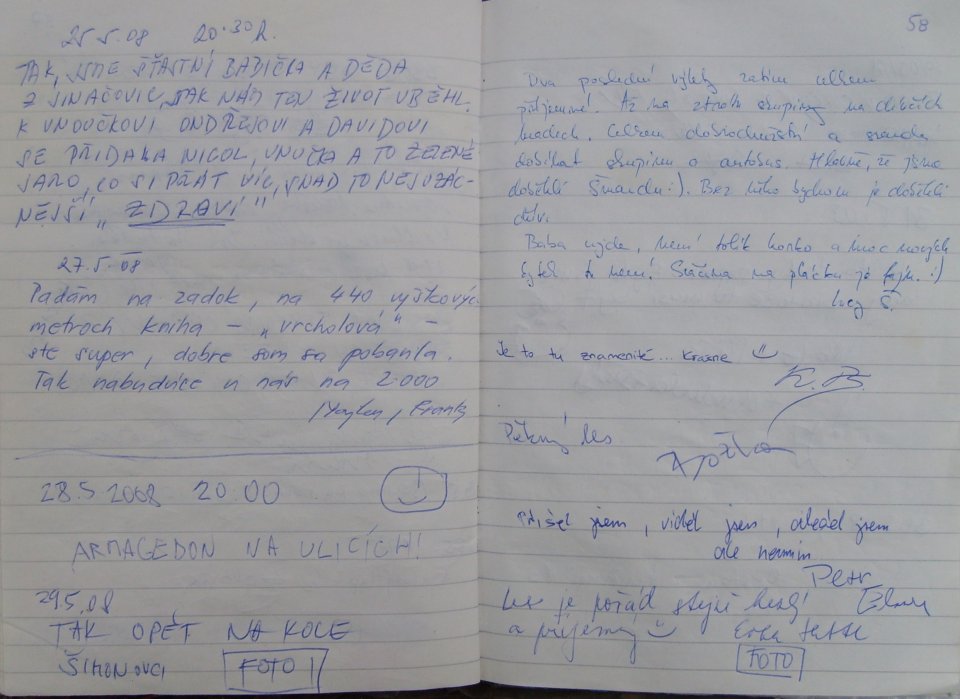 25.5.08 20.30 h.
TAK, JSME ŠŤASTNÍ BABIČKA A DĚDA
Z JINAČOVIC, JAK NÁM TEN ŽIVOT UBĚHL.
K VNOUČKOVI ONDŘEJOVI A DAVIDOVI
SE PŘIDALA NICOL, VNUČKA A TO ZELENÉ
JARO, CO SI PŘÁT VÍC, SNAD TO NEJVZÁC-
NĚJŠÍ „ZDRAVÍ"
27.5.08
Padám na zadok, na 440 výškových
metroch kniha – „vrcholová" –
ste super, dobre som sa pobavila.
Tak nabudúce u nás na 2000
28.5.2008 20.00
ARMAGEDON NA ULICÍCH!
29.5.08
TAK OPĚT NA KOLE
ŠIMONOVCI FOTO
58
Dva poslední výlety zatím celkem
příjemné! Až na ztrátu skupiny na
Celkem dobrodružství a sranda
dohánět skupinu a autobus. Hlavně, že jsme
:). Bez něho bychom je
dřív.
Baba ujde, není tolik horko a moc nových
to není! Svačina na plácku je fajn. :)
Lucy Š.
Je to tu znamenité... krásné
K. B.
Pěkný les
Přišel jsem, viděl jsem, jsem
ale nevím
Petr
Les je pořád stejně hezký
a příjemný
FOTO